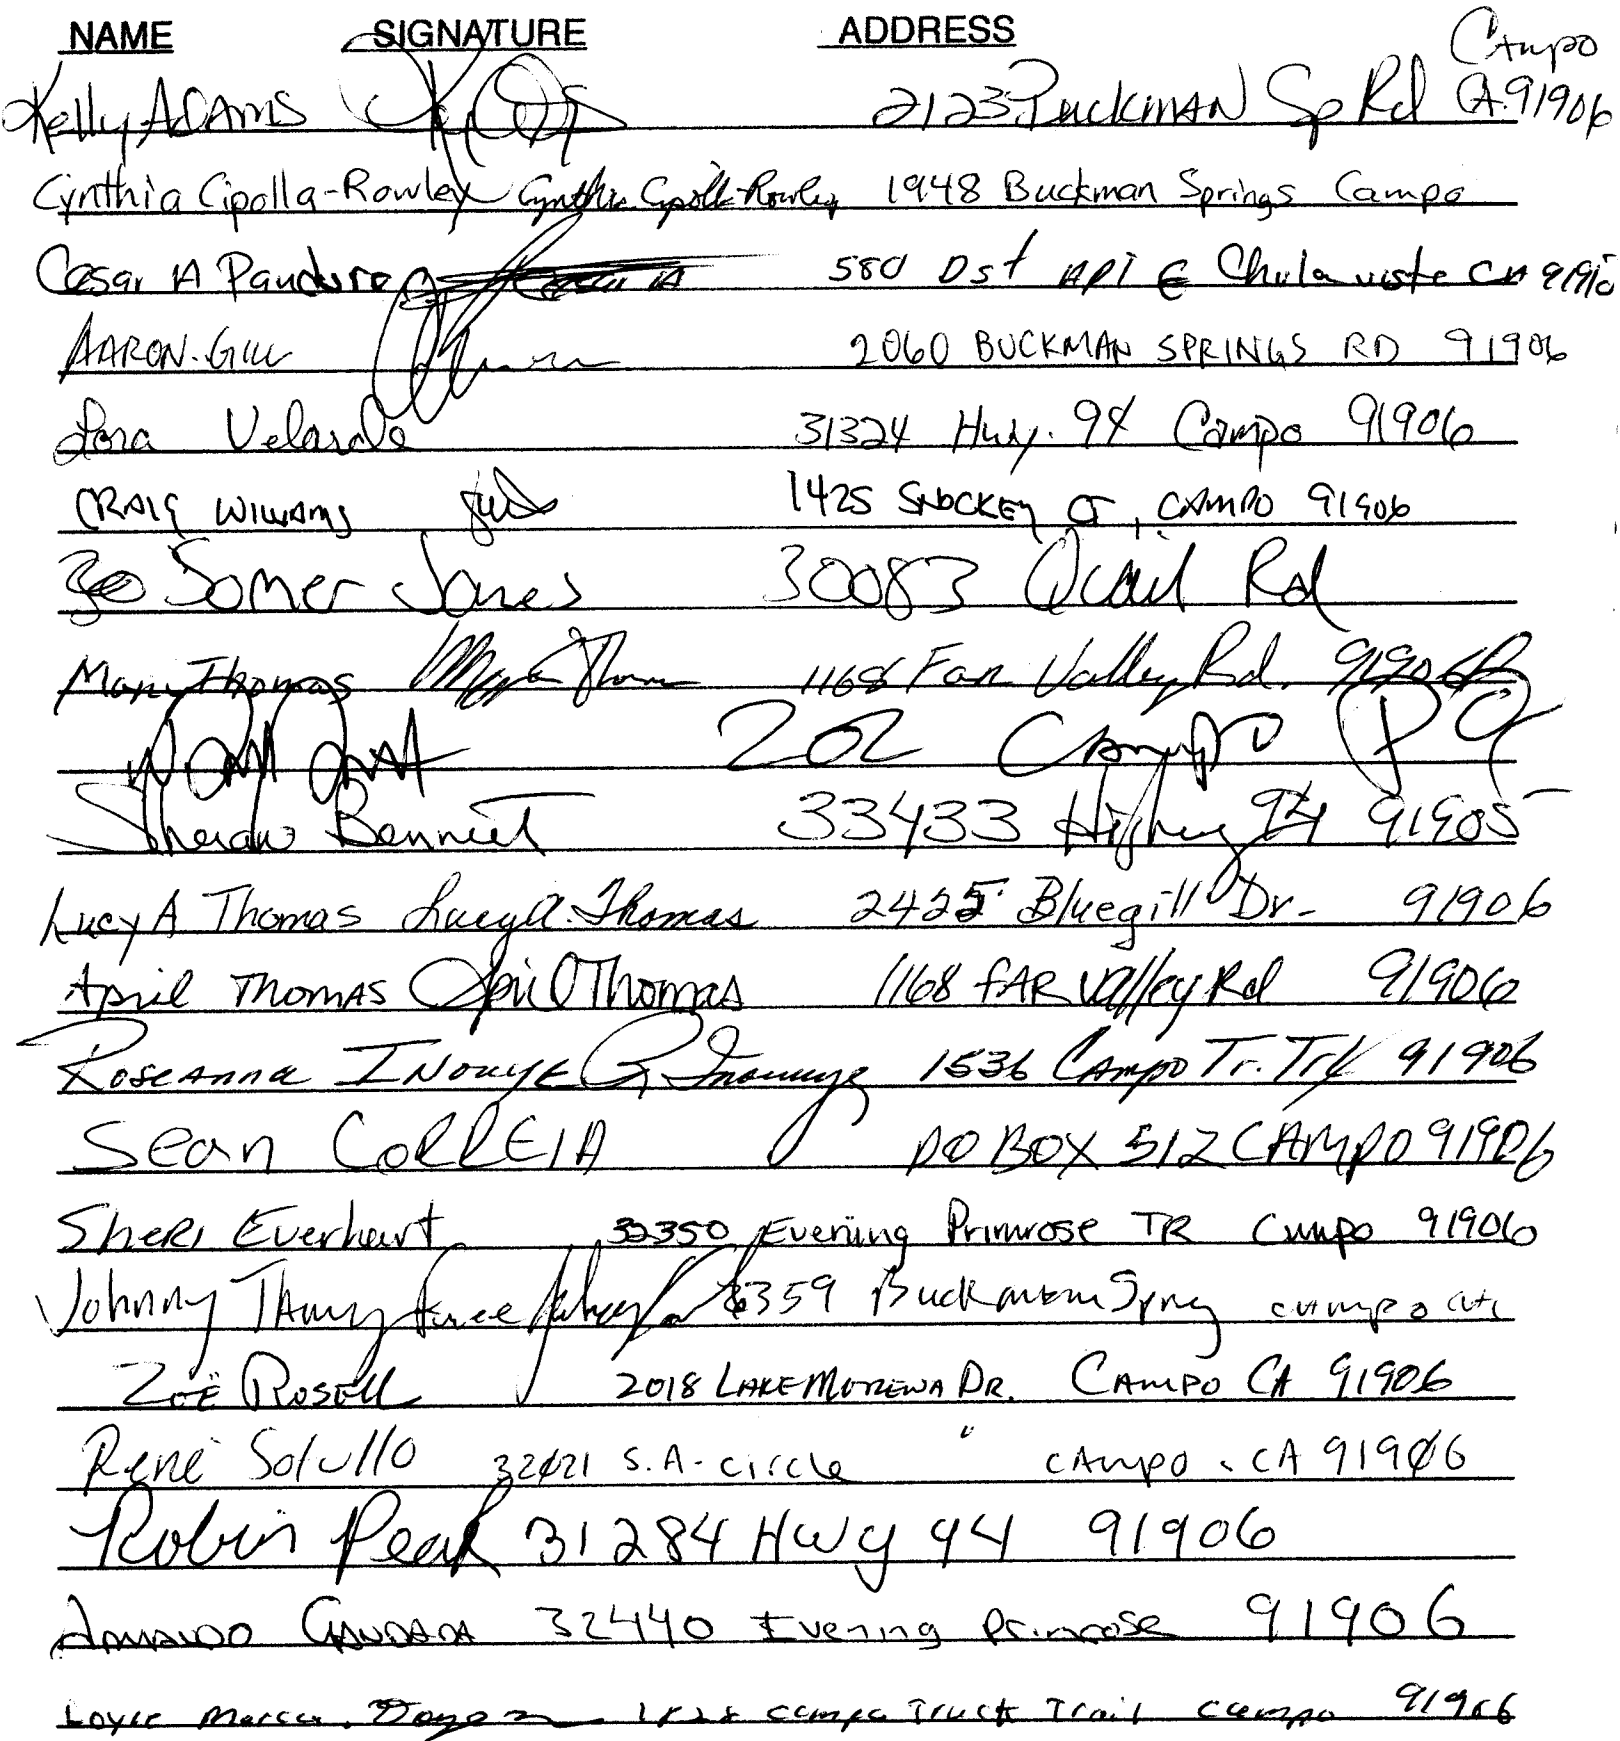 NAME SIGNATURE ADDRESS
Campo
Kelly ADAMS 2123 Buckman Sp Rd CA. 91906
Cynthia Cipolla-Rowley Cynthia Cipolla-Rowley 1948 Buckman Springs Campo
Cesar A Panduro 580 Dst APT E Chula viste CA
AARON GILL 2060 BUCKMAN SPRINGS RD 91906
Lora Velarde 31324 Hwy. 94 Campo 91906
CRAIG WILLIAMS 1425 CT, CAMPO 91906
Somer Jones 30083 Quail Rd
Mary Thomas 1168 Far Valley Rd. 91906
202 Campo
Bennett 33433 94 91905
Lucy A Thomas Lucy A. Thomas 2425 Bluegill Dr. 91906
April THOMAS April Thomas 1168 FAR Valley Rd 91906
Roseanna INOUYE R Inouye 1536 Campo Tr. Trl 91906
Sean CORREIA PO BOX 512 CAMPO 91906
SHERI Everhart 32350 Evening Primrose TR Campo 91906
Johnny 359 Campo
ZOË ROSELL 2018 LAKE MORENA DR. CAMPO CA 91906
René Sotullo S.A. circle " CAmpo. CA 91906
Robin Peak 31284 Hwy 94 91906
GANDARA 32440 Evening Primrose 91906
Truck Trail Campo 91906